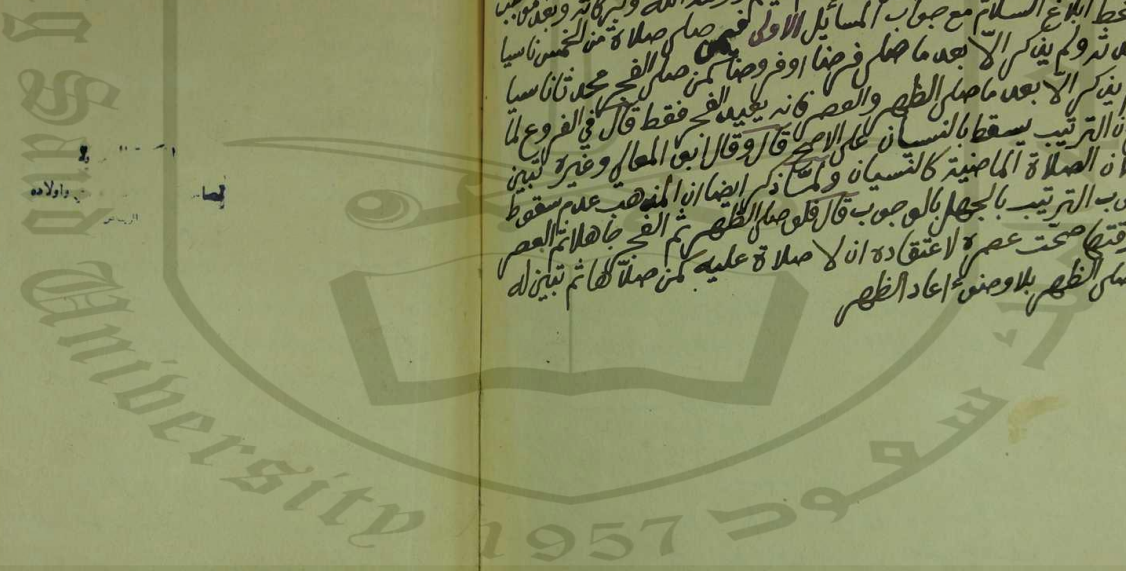 الخط ابلاغ السلام مع جواب المسائل الاولى فيمن صلى صلاة من الخمس ناسيا
حدثه ولم يذكر الّا بعد ما صلى فرضا او فروضا كمن صلى الفجر محدثا ناسيا
يذكر الّا بعد ما صلى الظهر والعصر فانه يعيد الفجر فقط قال في الفروع لما
ان الترتيب يسقط بالنسيان على الاصح قال وقال ابو المعالي وغيره تبين
بطلان الصلاة الماضية كالنسيان ولمّا ذكر ايضا ان المذهب عدم سقوط
وجوب الترتيب بالجهل بالوجوب قال فلو صلى الظهر ثم الفجر جاهلا ثم العصر
وقتها صحت عصره لاعتقاده ان لا صلاة عليه كمن صلّاها ثم تبين له
صلى الظهر بلا وضوء اعاد الظهر
واولاده
University 1957
سعود